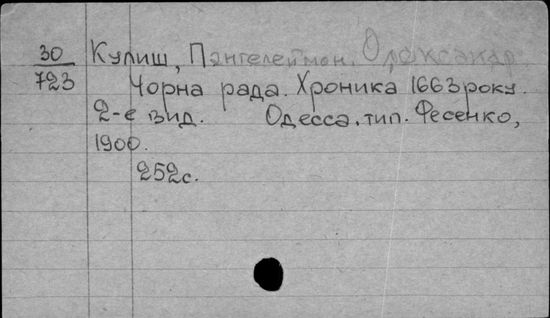 30 Кулиш, Пантелеймон. Олександр
723 Чорна рада. Хроника 1663 року.
2-е вид. Одесса, тип. Фесенко,
1900.
252с.